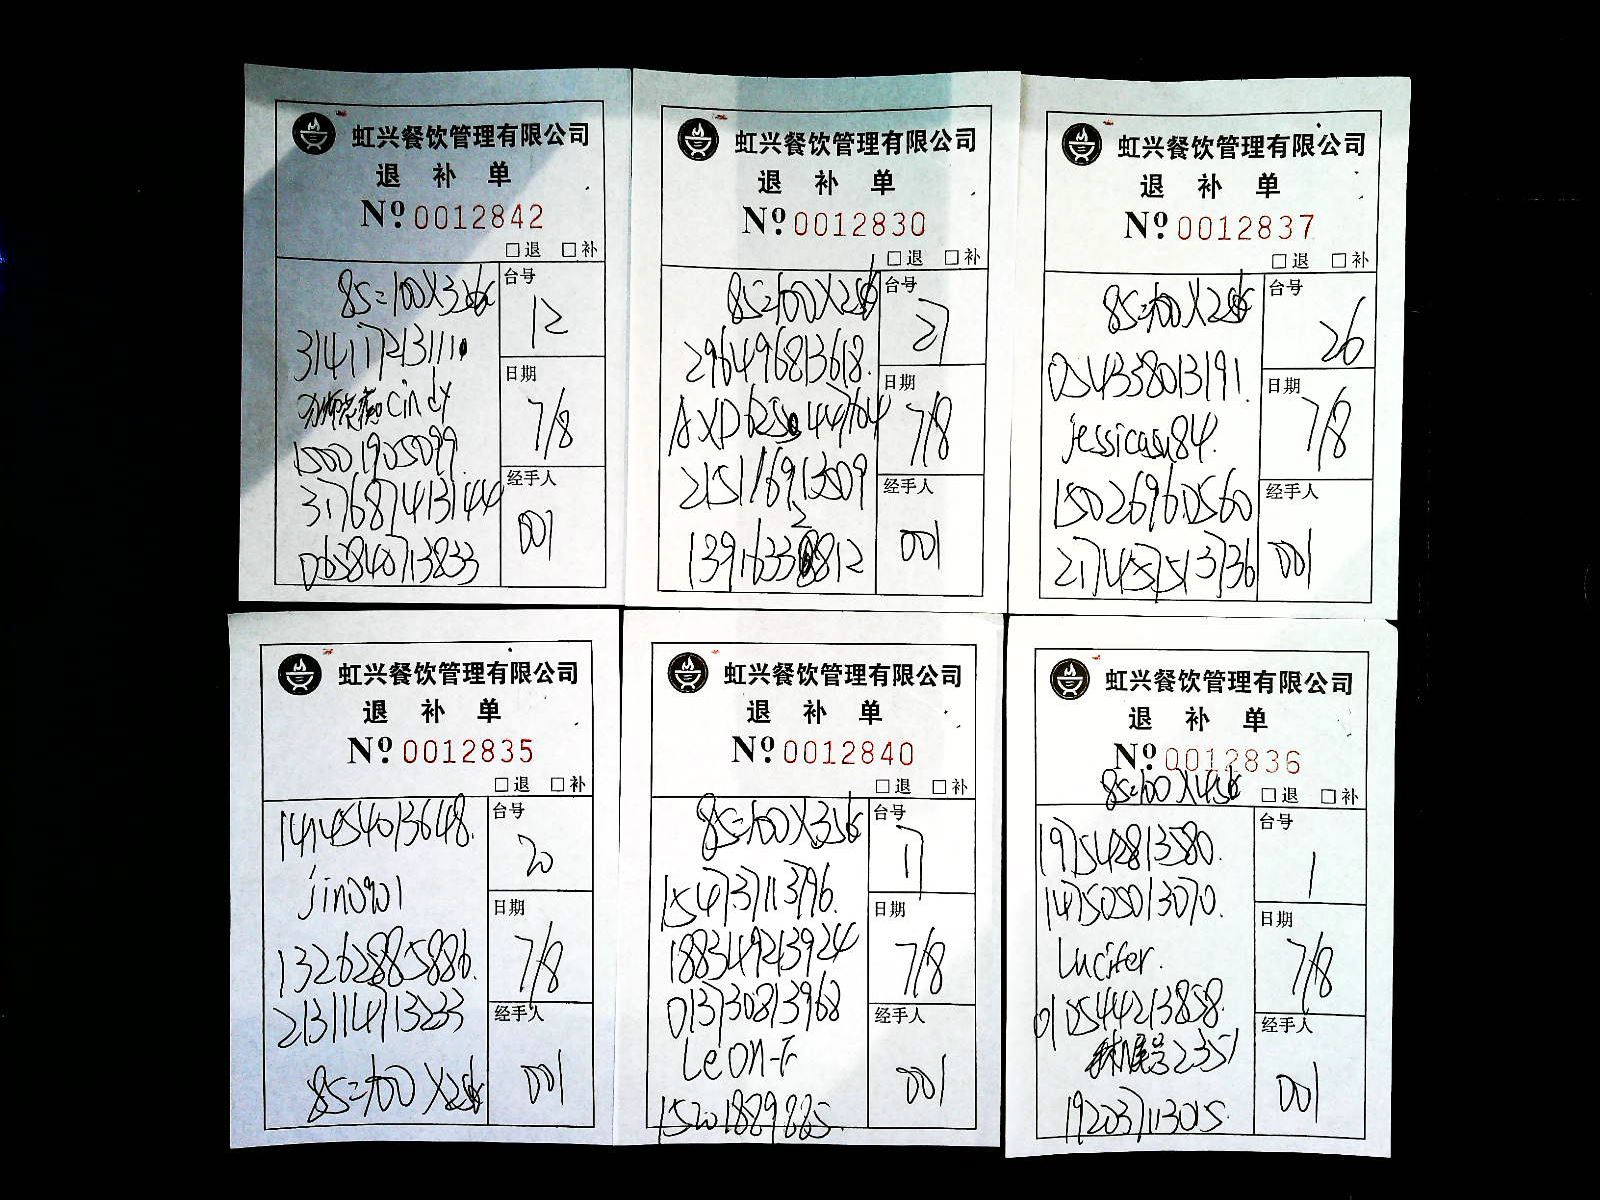 虹兴餐饮管理有限公司
退 补 单
Nº 0012842
□退 □补
85=100X3张
台号
12
3141172131110
日期
7/8
Cindy
15001905099
经手人
001
3176874131444
065840713833
虹兴餐饮管理有限公司
退 补 单
Nº 0012830
□退 □补
85=100X2张
台号
27
296496813618.
日期
7/8
AXD6250447704
215116913509
经手人
001
虹兴餐饮管理有限公司
退 补 单
Nº 0012837
□退 □补
85=100X2张
台号
26
0543358013191
日期
7/8
jessicasu84.
15026960560
经手人
001
217457513736
虹兴餐饮管理有限公司
退 补 单
Nº 0012835
□退 □补
141454013648.
台号
20
jin0901
日期
7/8
13262885886.
213114713233
经手人
001
85=100X2张
虹兴餐饮管理有限公司
退 补 单
Nº 0012840
□退 □补
85=100X3张
台号
17
154737113796.
日期
7/8
1883149213924
013730813968
经手人
001
Leon-Fr
15201889885.
虹兴餐饮管理有限公司
退 补 单
Nº 0012836
85=100X4张
□退 □补
台号
1
197542813580.
147505013070.
日期
7/8
Lucifer.
0105444213858.
经手人
001
尾号2351
192037113015.